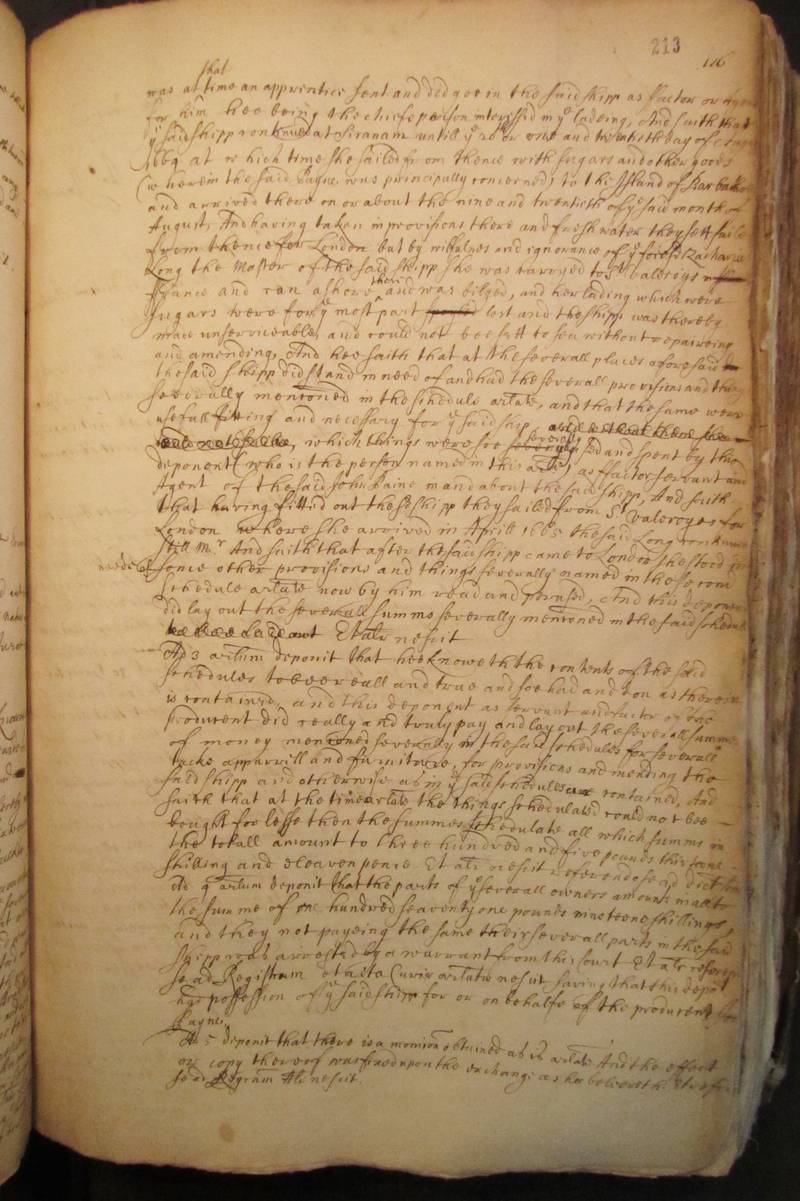 213
116
that
was at time an apprentice sent and did goe in the said shipp as factor or Agent
for him hee being the chiefe person interessed in ye ladeing, And saith that
ye said shipp continued at Siranam untill ye 20th or one and twentieth day of
1664 at which time she sailed from thence with sugars and other goods
(wherein the said Payne was principally concerned) to the Island of Barbados
and arrived there on or about the nine and twentieth of ye said month of
August, And having taken in provisions there and fresh water they sett saile
from thence for London but by mistakes and ignorance of ye foresaid Zacharie
Long the Master of the said shipp she was carryed to St Valeroyes in
ffrance and ran ashore there and was bilged, and her lading which were
sugars were for ye most part lost and the shipp was thereby
made unserviceable, and could not bee sett to sea without repaireing
and amending, And hee saith that at the severall places aforesaid
the said shipp did stand in need of and had the severall provisions and things
severally mentioned in the schedule arlate, and that the same were
usefull fitting and necessary for ye said ship,
which things were soe severally used and spent by this
deponent (who is the person named in this arle) as ffactor servant and
Agent of the said John Paine in and about the said shipp, And saith
that having fitted out the sd shipp they sailed from St Valeroyes for
London where she arrived in Aprill 1665 the said Long
still Mr And saith that after the said shipp came to London she stood in
neede of some other provisions and things severally named in the second
schedule arlate now by him read and perused, And this deponent
did lay out the severall summs severally mentioned in the said schedule
Et alr nescit
Ad 3 arlum deponit that hee knoweth the contents of the said
schedules to bee reall and true and soe had and don as therein
is contained, and this deponent as servant and factor of the
producent did really and truly pay and lay out the severall summes
of money mentioned severally in the said schedules for severall
tacke apparrill and furniture, for provisions and mending the
said shipp and otherwise as in ye said schedules are contained, And
saith that at the time arlate the things schedulated could not bee
bought for lesse then the summes schedulate all which summs in
the totall amount to three hundred and five pounds thirteene
shilling and eleaven pence Et alr nescit
Ad 4 arlum deponit that the parts of ye severall owners amounts unto
the summe of one hundred seaventy one pounds nineteene shillings,
and they not payeing the same their severall parts in the said
shipp was arrested by a warrant from this Court Et alr referendo
se ad Registrum et acta Curiae arlate nescit saving that this deponent
had possession of ye said shipp for or on behalfe of the producent John
Payne,
Ad 5 deponit that there is a monicon obtained as is arlate And the effect
or copy thereof was fixed upon the exchange as hee beleeveth Et refert
se ad Registrum Alr nescit.